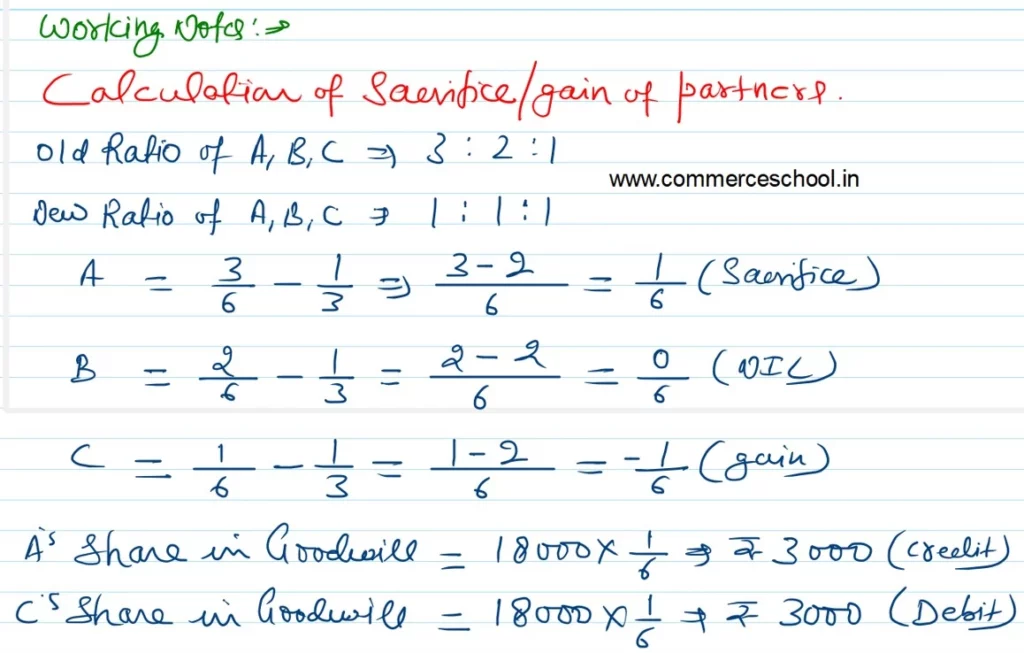 Working Notes:→
Calculation of Sacrifice/gain of partners.
Old Ratio of A, B, C ⇒ 3 : 2 : 1
www.commerceschool.in
New Ratio of A, B, C ⇒ 1 : 1 : 1
A = 3/6 − 1/3 ⇒ 3−2/6 = 1/6 (Sacrifice)
B = 2/6 − 1/3 = 2−2/6 = 0/6 (NIL)
C = 1/6 − 1/3 = 1−2/6 = −1/6 (gain)
A's Share in Goodwill = 18000 × 1/6 ⇒ ₹ 3000 (Credit)
C's Share in Goodwill = 18000 × 1/6 → ₹ 3000 (Debit)